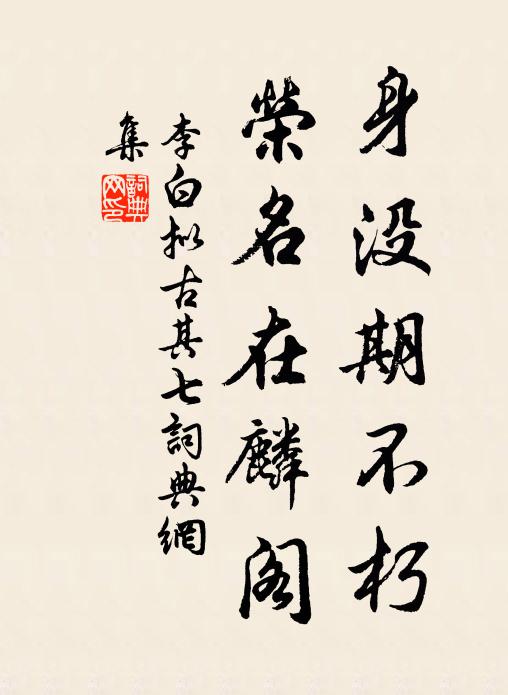 身没期不朽
荣名在麟阁
李白拟古其七詞典網
集
詞典
网印